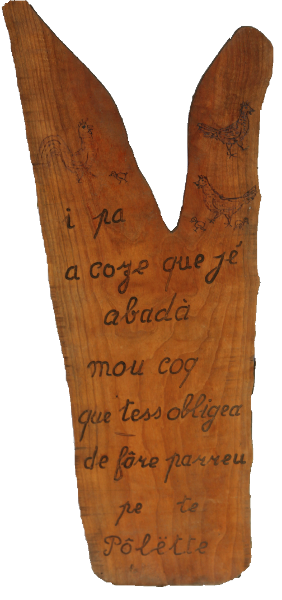 i pa
a coze que jé
abadà
mou coq
que t'ess obligea
de fâre parreu
pe te
Pôlëtte